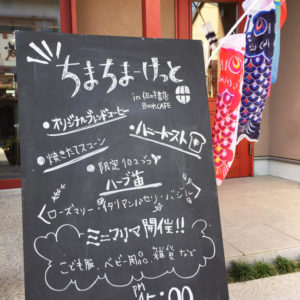 ちまちまーけっと
in 佐吋書店
BOOKCAFE
・オリジナルブレンドコーヒー
・ハニートースト
・焼きたてスコーン
・限定10コ
ハーブ苗
ローズマリー・イタリアンパセリ・バジル
ミニフリマ開催!!
こども服、ベビー用品、雑貨など
PM
15:00